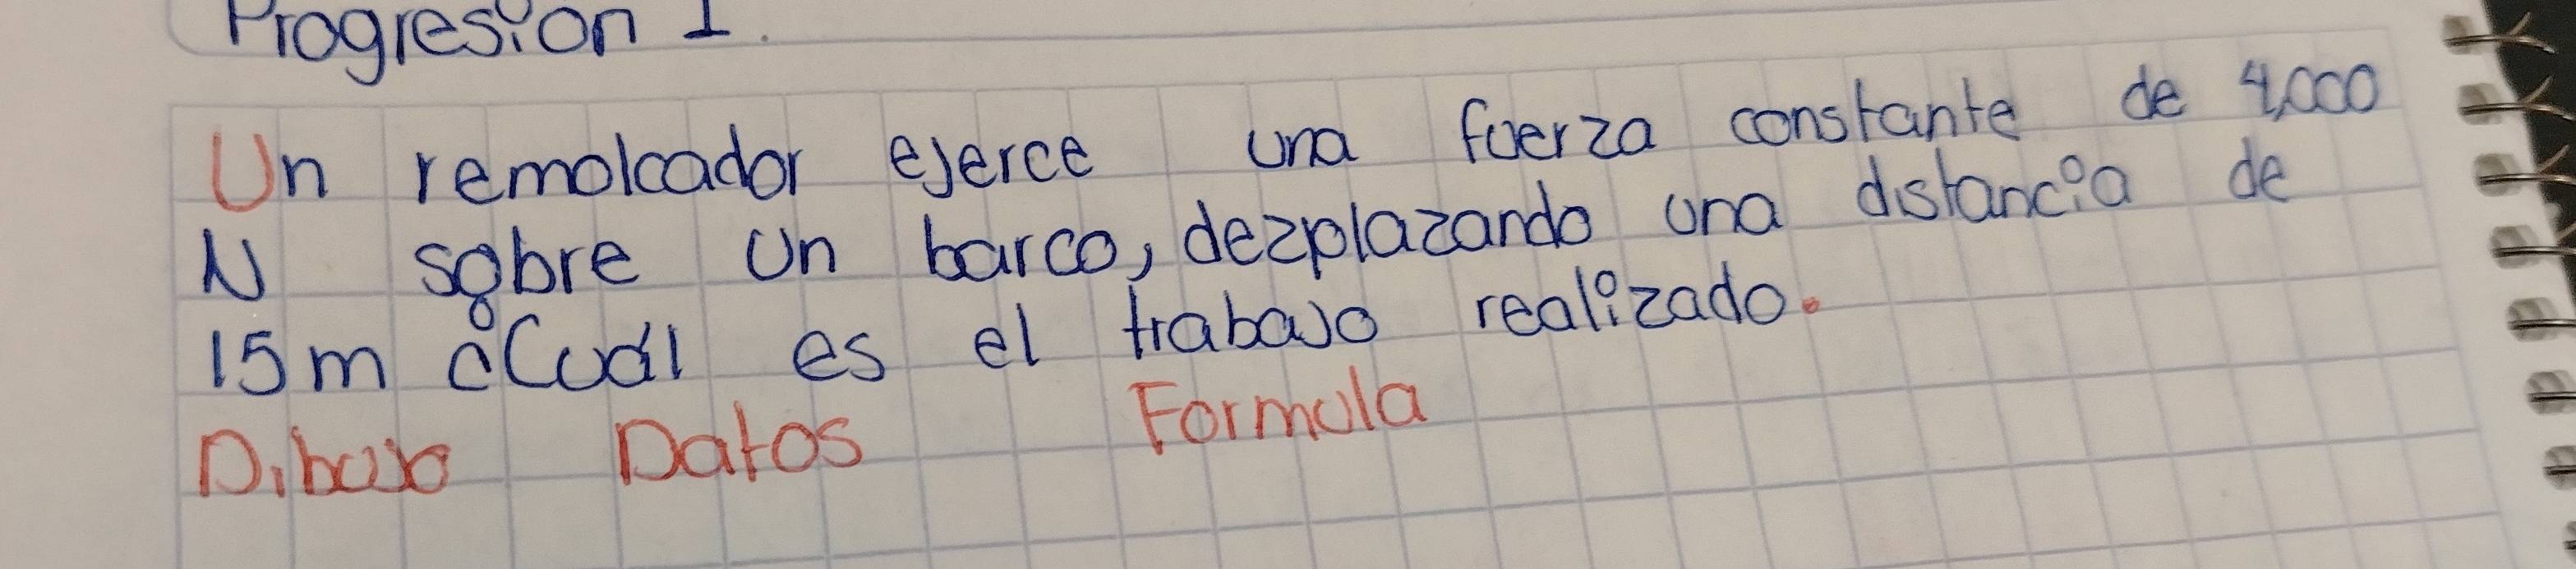 Progresion I.
Un remolcador ejerce una fuerza constante de 4,000
N sobre un barco, dezplazando una distancia de
15m ¿Cuál es el trabajo realizado.
Dibujo Datos Formula